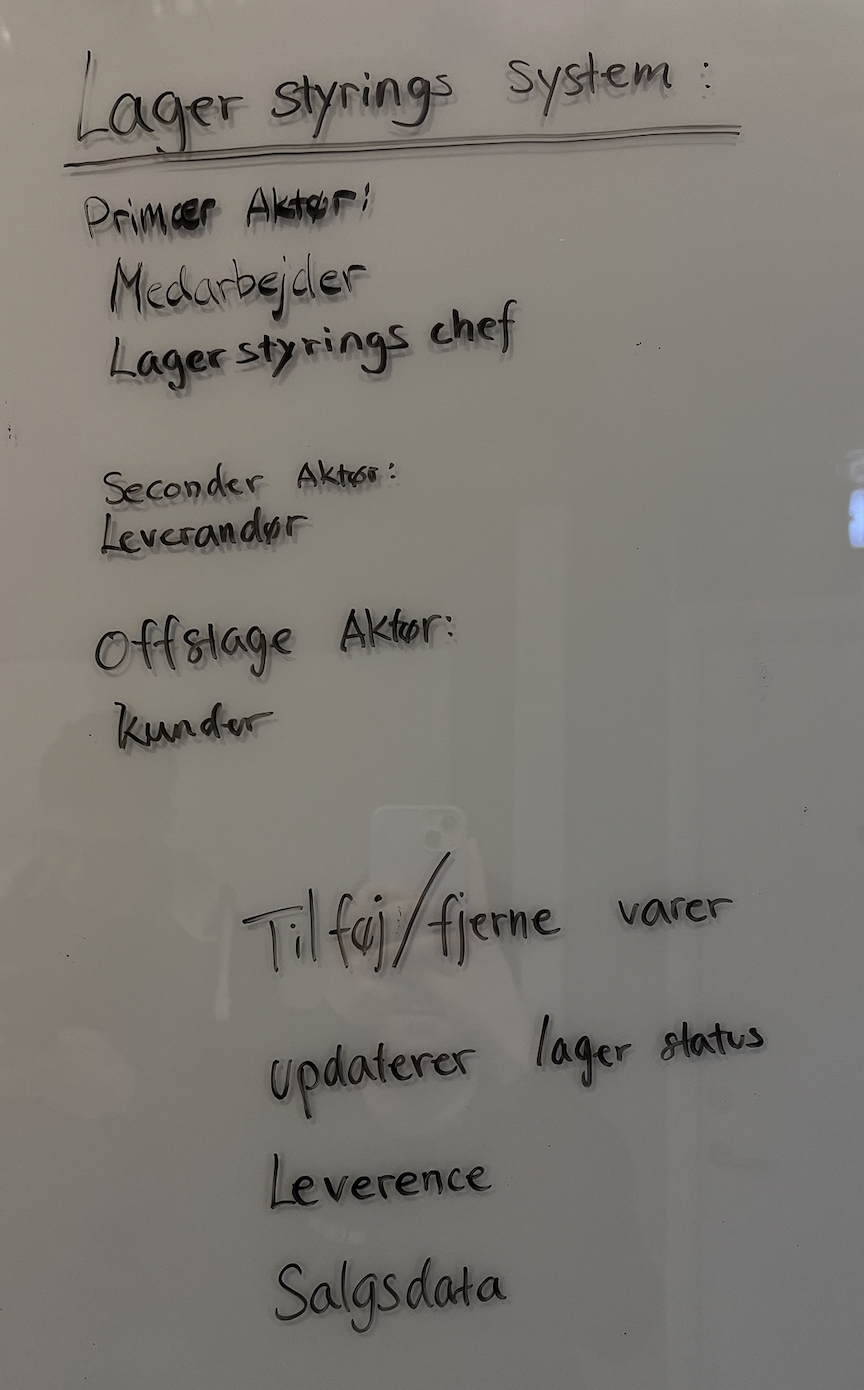 Lager styrings system :
Primær Aktør:
Medarbejder
Lagerstyrings chef
Seconder Aktør:
Leverandør
Offstage Aktør:
Kunder
Tilføj/fjerne varer
updaterer lager status
Leverence
Salgsdata